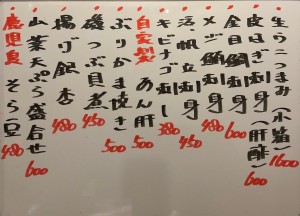 生うにつまみ(小箱) 1600
皮はぎ刺身(肝酢) 600
金目鯛刺身 600
メジ鮪刺身 480
活帆立刺身 450
キビナゴ刺 380
自家製 あん肝 500
ぶりかま焼き 500
磯つぶ貝煮 450
揚げ銀杏 480
山菜天ぷら盛合せ 600
鹿児島 そら豆 480